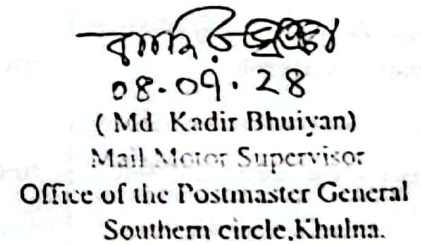 কাদির
০৪.০৭.২৪
( Md Kadir Bhuiyan)
Mail Motor Supervisor
Office of the Postmaster General
Southern circle,Khulna.